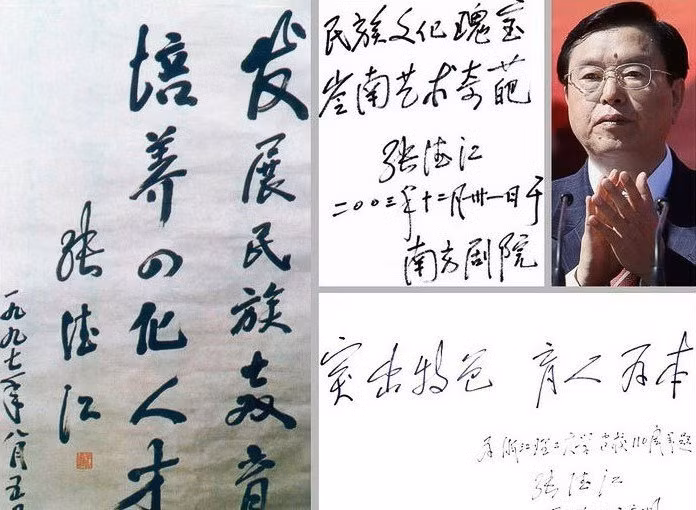 发展民族教育
培养四化人才
张德江
一九九七年八月五
民族文化瑰宝
岭南艺术奇葩
张德江
二〇〇三年十二月卅一日于
南方剧院
突出特色 育人为本
为浙江理工大学建校110周年题
张德江